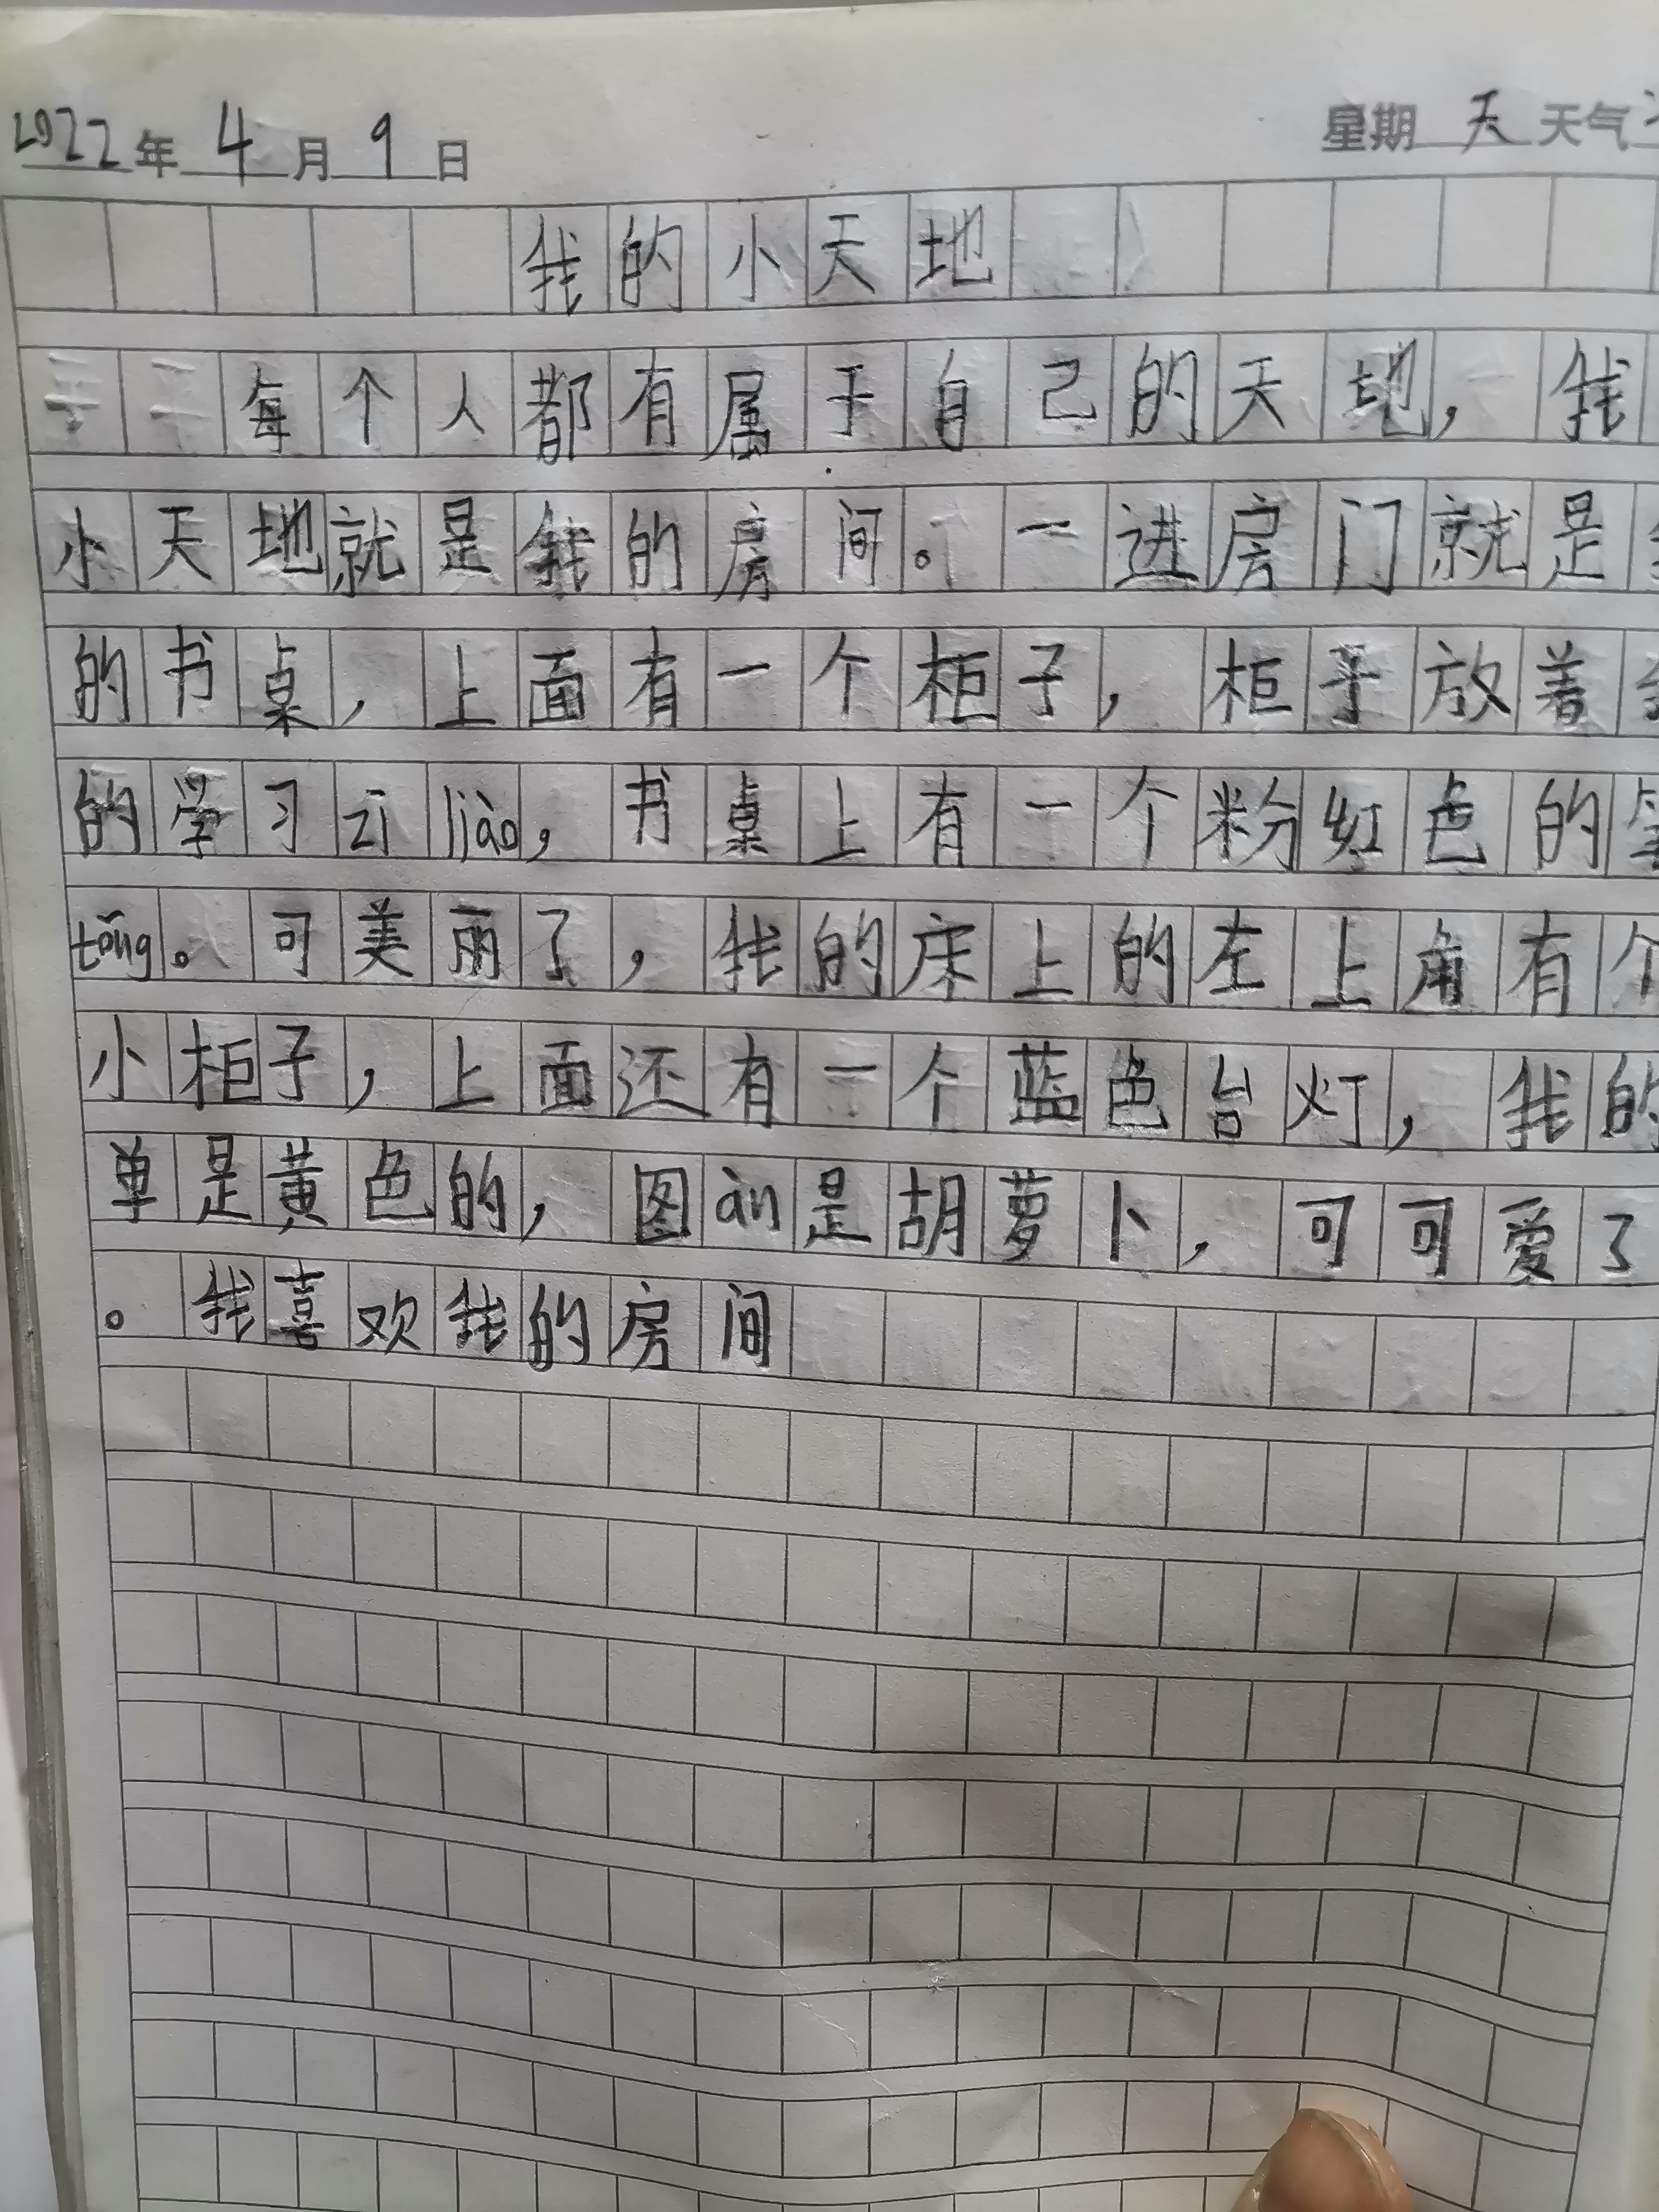 2022年4月9日 星期天 天气
我的小天地
每个人都有属于自己的天地，我
小天地就是我的房间。一进房门就是
的书桌，上面有一个柜子，柜子放着
的学习zī liào，书桌上有一个粉红色的
tǒng。可美丽了，我的床上的左上角有个
小柜子，上面还有一个蓝色台灯，我的
单是黄色的，图àn是胡萝卜，可可爱了
。我喜欢我的房间